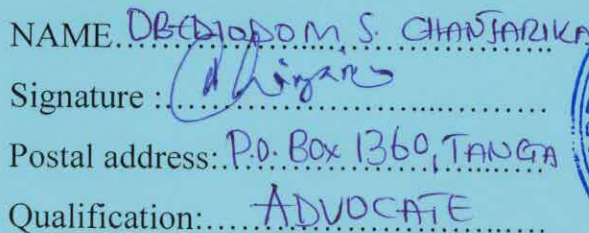 NAME. OBEDIODOM S. CHANJARIKA
Signature :
Postal address: P.O. BOX 1360, TANGA
Qualification: ADVOCATE